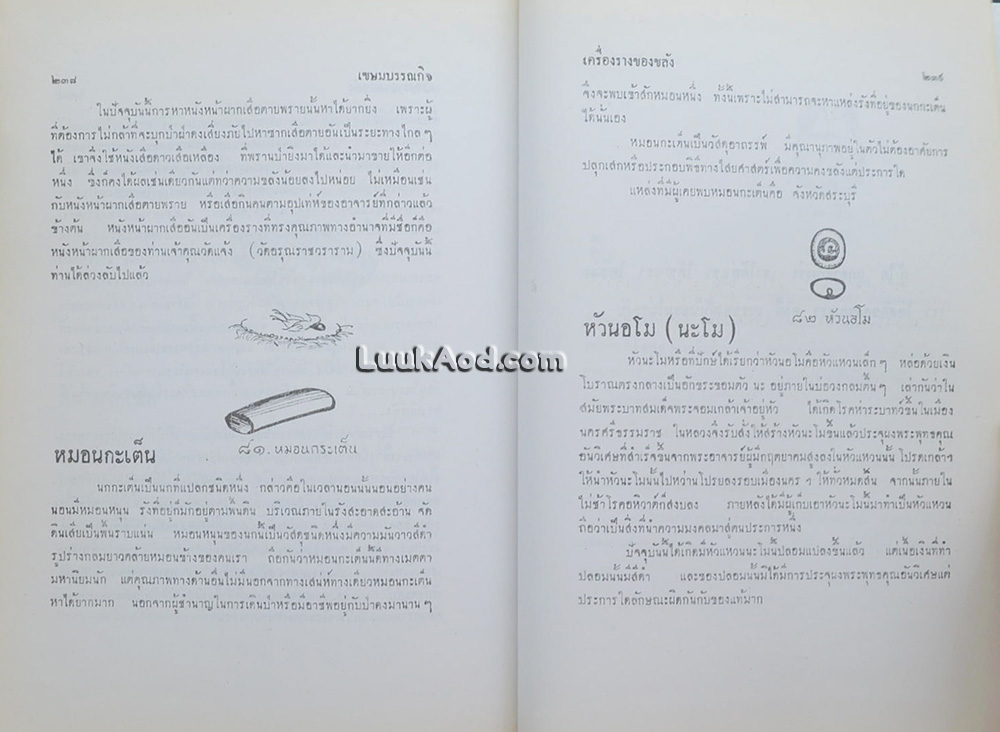 ๒๓๘ เขษมบรรณกิจ
ในปัจจุบันนี้การหาหนังหน้าผากเสือตายพรายนั้นหาได้ยากยิ่ง เพราะผู้
ที่ต้องการไม่กล้าที่จะบุกป่าฝ่าดงเสี่ยงภัยไปหาซากเสือตายอันเป็นระยะทางไกล ๆ
ได้ เขาจึงใช้หนังเสือดาวเสือเหลือง ที่พรานป่ายิงมาได้และนำมาขายให้อีกต่อ
หนึ่ง ซึ่งก็คงได้ผลเช่นเดียวกันแต่ทว่าความขลังน้อยลงไปหน่อย ไม่เหมือนเช่น
กับหนังหน้าผากเสือตายพราย หรือเสือกินคนตามอุปเท่ห์ของอาจารย์ที่กล่าวแล้ว
ข้างต้น หนังหน้าผากเสืออันเป็นเครื่องรางที่ทรงคุณภาพทางอำนาจที่มีชื่อก็คือ
หนังหน้าผากเสือของท่านเจ้าคุณวัดแจ้ง (วัดอรุณราชวราราม) ซึ่งปัจจุบันนี้
ท่านได้ล่วงลับไปแล้ว
LuukAod.com
๘๑. หมอนกระเต็น
หมอนกะเต็น
นกกะเต็นเป็นนกที่แปลกชนิดหนึ่ง กล่าวคือในเวลานอนนั้นนอนอย่างคน
นอนมีหมอนหนุน รังที่อยู่ก็มักอยู่ตามพื้นดิน บริเวณภายในรังสะอาดสะอ้าน จิด
ดินเสียเป็นพื้นราบแน่น หมอนหนุนของนกนั้นเป็นวัสดุชนิดหนึ่งมีความมันวาวสีดำ
รูปร่างกลมยาวคล้ายหมอนข้างของคนเรา ถือกันว่าหมอนกะเต็นนี้ดีทางเมตตา
มหานิยมนัก แต่คุณภาพทางด้านอื่นไม่มีนอกจากทางเสน่ห์ทางเดียวหมอนกะเต็น
หาได้ยากมาก นอกจากผู้ชำนาญในการเดินป่าหรือมีอาชีพอยู่กับป่าดงมานาน ๆ
เครื่องรางของขลัง ๒๓๙
จึงจะพบเข้าสักหมอนหนึ่ง ทั้งนี้เพราะไม่สามารถจะหาแหล่งรังที่อยู่ของนกกะเต็น
ได้นั่นเอง
หมอนกะเต็นเป็นวัตถุอาถรรพ์ มีคุณานุภาพอยู่ในตัวไม่ต้องอาศัยการ
ปลุกเสกหรือประกอบพิธีทางไสยศาสตร์เพื่อความคงขลังแต่ประการใด
แหล่งที่มีผู้เคยพบหมอนกะเต็นคือ จังหวัดสระบุรี
๘๒ หัวนอโม
หัวนอโม (นะโม)
หัวนะโมหรือที่ปักษ์ใต้เรียกว่าหัวนอโมคือหัวแหวนเล็ก ๆ หล่อด้วยเงิน
โบราณตรงกลางเป็นอักขระขอมตัว นะ อยู่ภายในบ่อวงกลมตื้น ๆ เล่ากันว่าใน
สมัยพระบาทสมเด็จพระจอมเกล้าเจ้าอยู่หัว ได้เกิดโรคห่าระบาทว์ขึ้นในเมือง
นครศรีธรรมราช ในหลวงจึงรับสั่งให้สร้างหัวนะโมขึ้นแล้วประจุผงพระพุทธคุณ
อันวิเศษที่สำเร็จขึ้นจากพระอาจารย์ผู้มีกฤตยาคมสูงลงในหัวแหวนนั้น โปรดเกล้าฯ
ให้นำหัวนะโมนั้นไปหว่านโปรยลงรอบเมืองนคร ฯ ให้ทั่วหมดสิ้น จากนั้นภายใน
ไม่ช้าโรคอหิวาต์ก็สงบลง ภายหลังได้มีผู้เก็บเอาหัวนะโมนั้นมาทำเป็นหัวแหวน
ถือว่าเป็นสิ่งที่นำความมงคลมาสู่ตนประการหนึ่ง
ปัจจุบันนี้ได้เกิดมีหัวแหวนนะโมนั้นปลอมแปลงขึ้นแล้ว แต่เนื้อเงินที่ทำ
ปลอมนั้นมีสีดำ และของปลอมนั้นมิได้มีการประจุผงพระพุทธคุณอันวิเศษแต่
ประการใดลักษณะผิดกันกับของแท้มาก